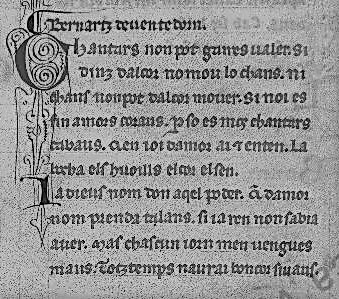 Bernartz deuentedorn.
Chantars non pot gaires ualer. Si
dinz dalcor no mou lo chans. ni
chans non pot dalcor mouer. Si noi es
fin amors coraus. p so es mos chantars
cabaus. Qen ioi damor ai & enten. La
bocha els huoills el cor el sen.
Ia dieus nom don aqel poder. Qe damor
nom prenda talans. si ia ren non sabia
auer. Mas chascun iorn men uengues
maus. Totz temps naurai bon cor siuaus.